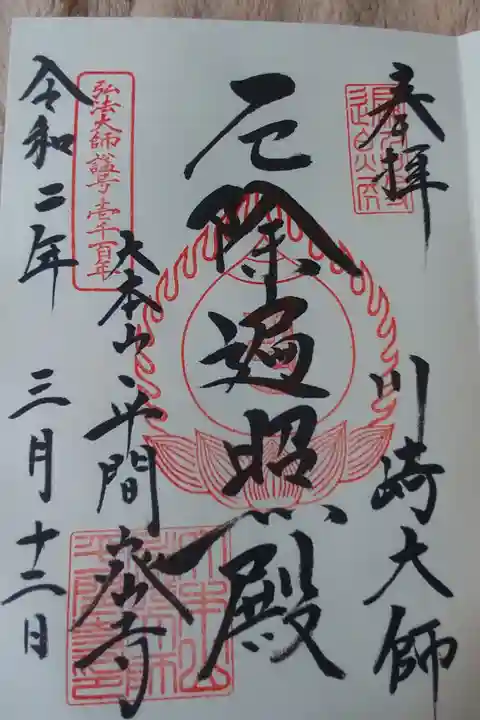 奉拝
川崎大師
厄除遍照殿
大本山平間寺
弘法大師諡号壱千百年
令和二年
三月十二日